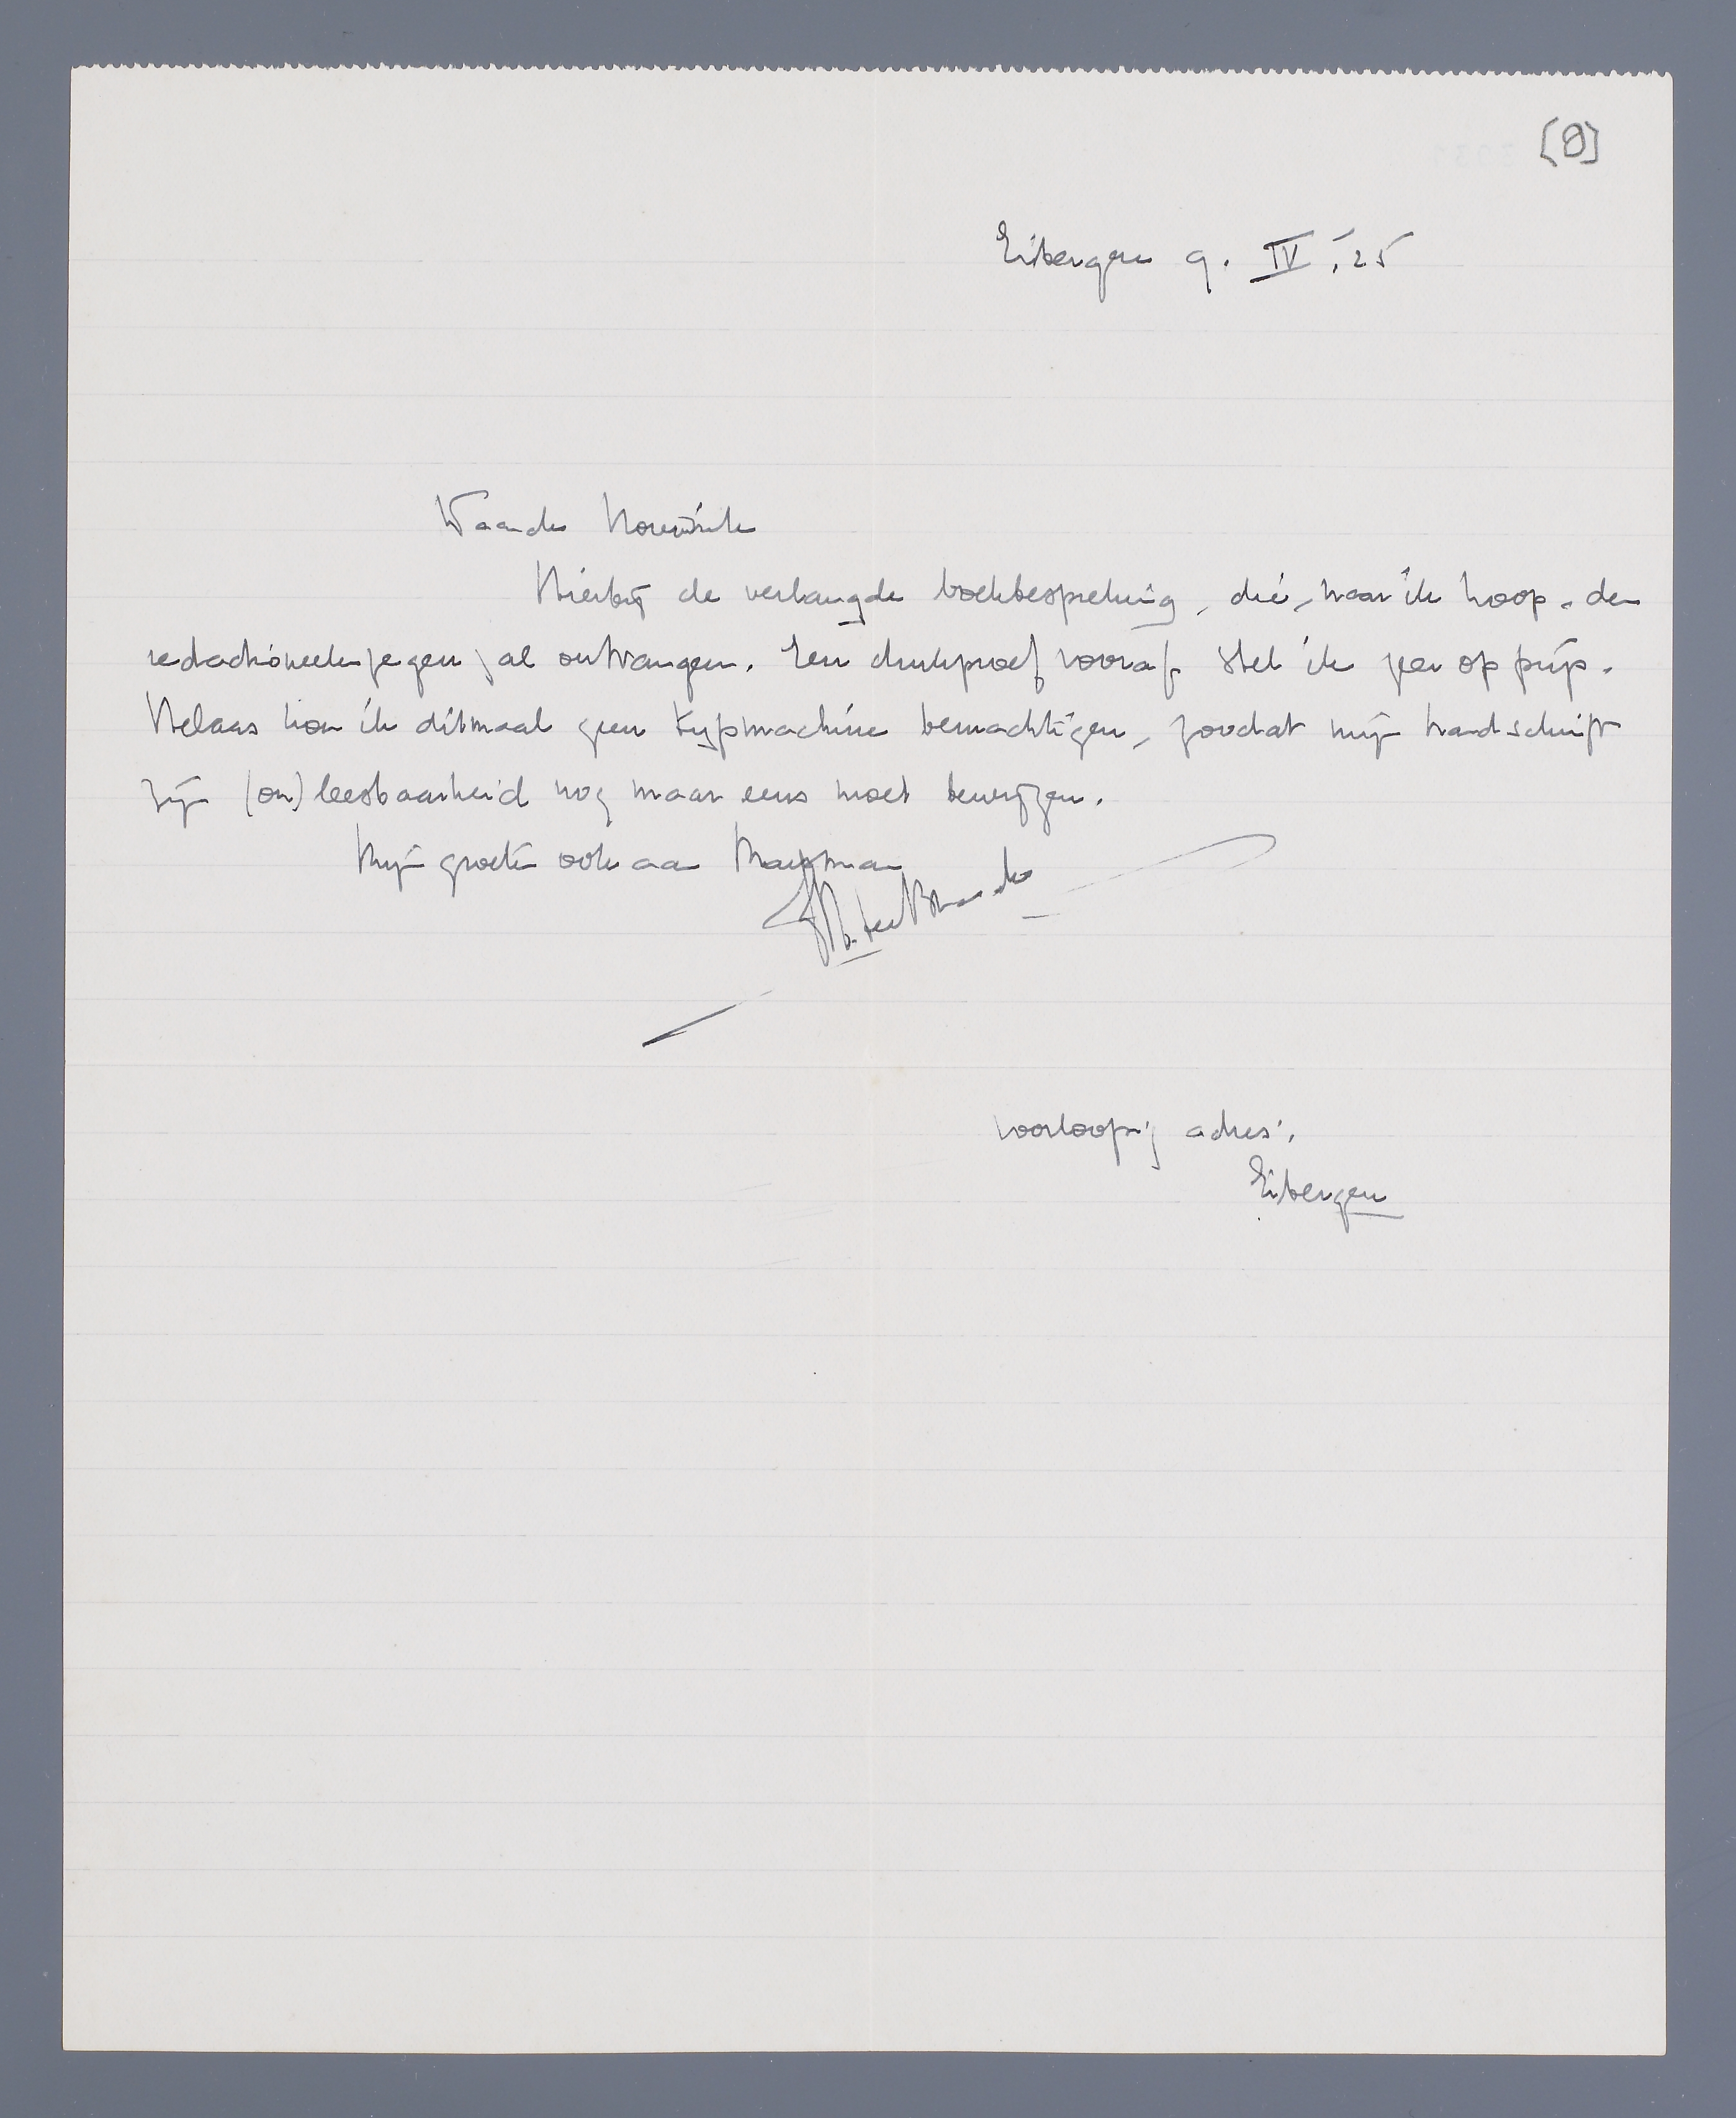 [8]
Eibergen 9. IV. '25
Waarde Houwink
Hierbij de verlangde boekbespreking, die, naar ik hoop, den
redactioneelen zegen zal ontvangen. Een drukproef vooraf stel ik zeer op prijs.
Helaas kon ik ditmaal geen typmachine bemachtigen, zoodat mijn handschrift
zijn (on)leesbaarheid nog maar eens moet bewijzen.
Mijn groeten ook aan Marsman
M. ter Braak
voorloopig adres:
Eibergen